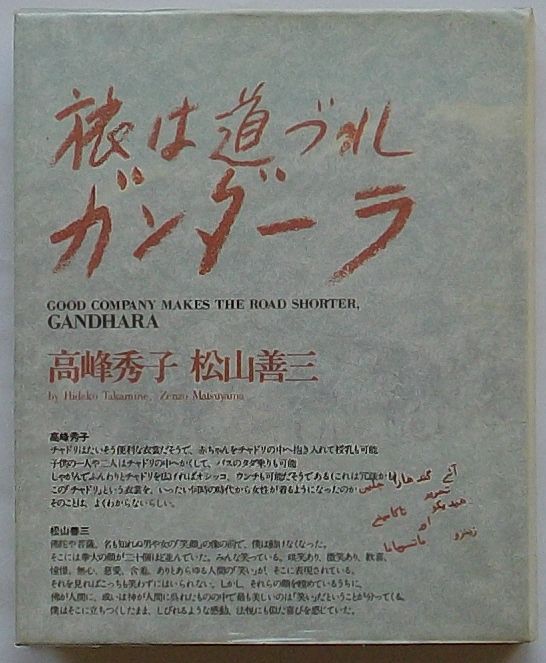 旅は道づれ
ガンダーラ
GOOD COMPANY MAKES THE ROAD SHORTER,
GANDHARA
高峰秀子 松山善三
by Hideko Takamine, Zenzo Matsuyama
高峰秀子
チャドリはたいそう便利な衣裳だそうで、赤ちゃんをチャドリの中へ抱き入れて授乳も可能
子供の一人や二人はチャドリの中へかくして、バスのタダ乗りも可能
しゃがんでふんわりとチャドリを広げればオシッコ、ウンチも可能だそうである(これは冗談かも
この「チャドリ」という衣裳を、いったい何時の時代から女性が着るようになったのか
そのことは、よくわからないらしい。
松山善三
佛陀や菩薩、名も知れぬ男や女の「笑顔」の像の前で、僕は動けなくなった。
そこには等大の顔が二十個ほど並んでいた。みんな笑っている。哄笑あり、微笑あり、歓喜、
憧憬、無心、慈愛、含羞、ありとあらゆる人間の「笑い」が、そこに表現されている。
それを見ればこっちも笑わずにはいられない。しかし、それらの顔を眺めているうちに、
佛が人間に、或いは神が人間に呉れたものの中で最も美しいのは「笑い」だということが分ってくる。
僕はそこに立ちつくしたまま、しびれるような感動、法悦にも似た喜びを感じていた。